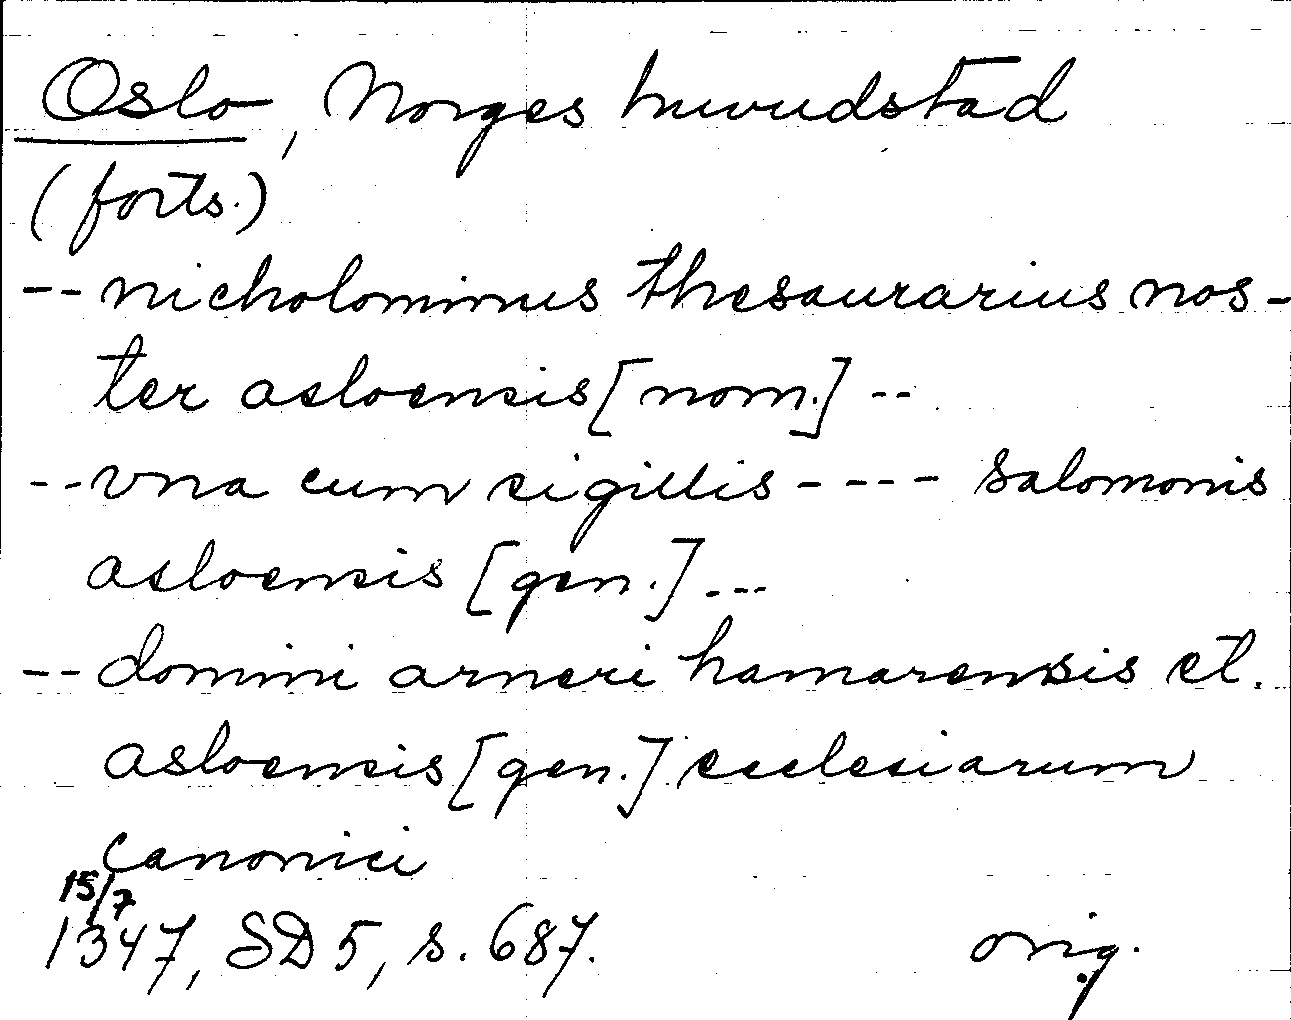 Oslo, Norges huvudstad
(forts.)
-- nicholominus thesaurarius nos-
ter asloensis [nom.] --
-- vna cum sigillis ---- salomonis
asloensis [gen.] ---
-- domini arneri hamarensis et.
asloensis [gen.] ecclesiarum
canonici
15/7
1347, SD 5, s. 687. orig.